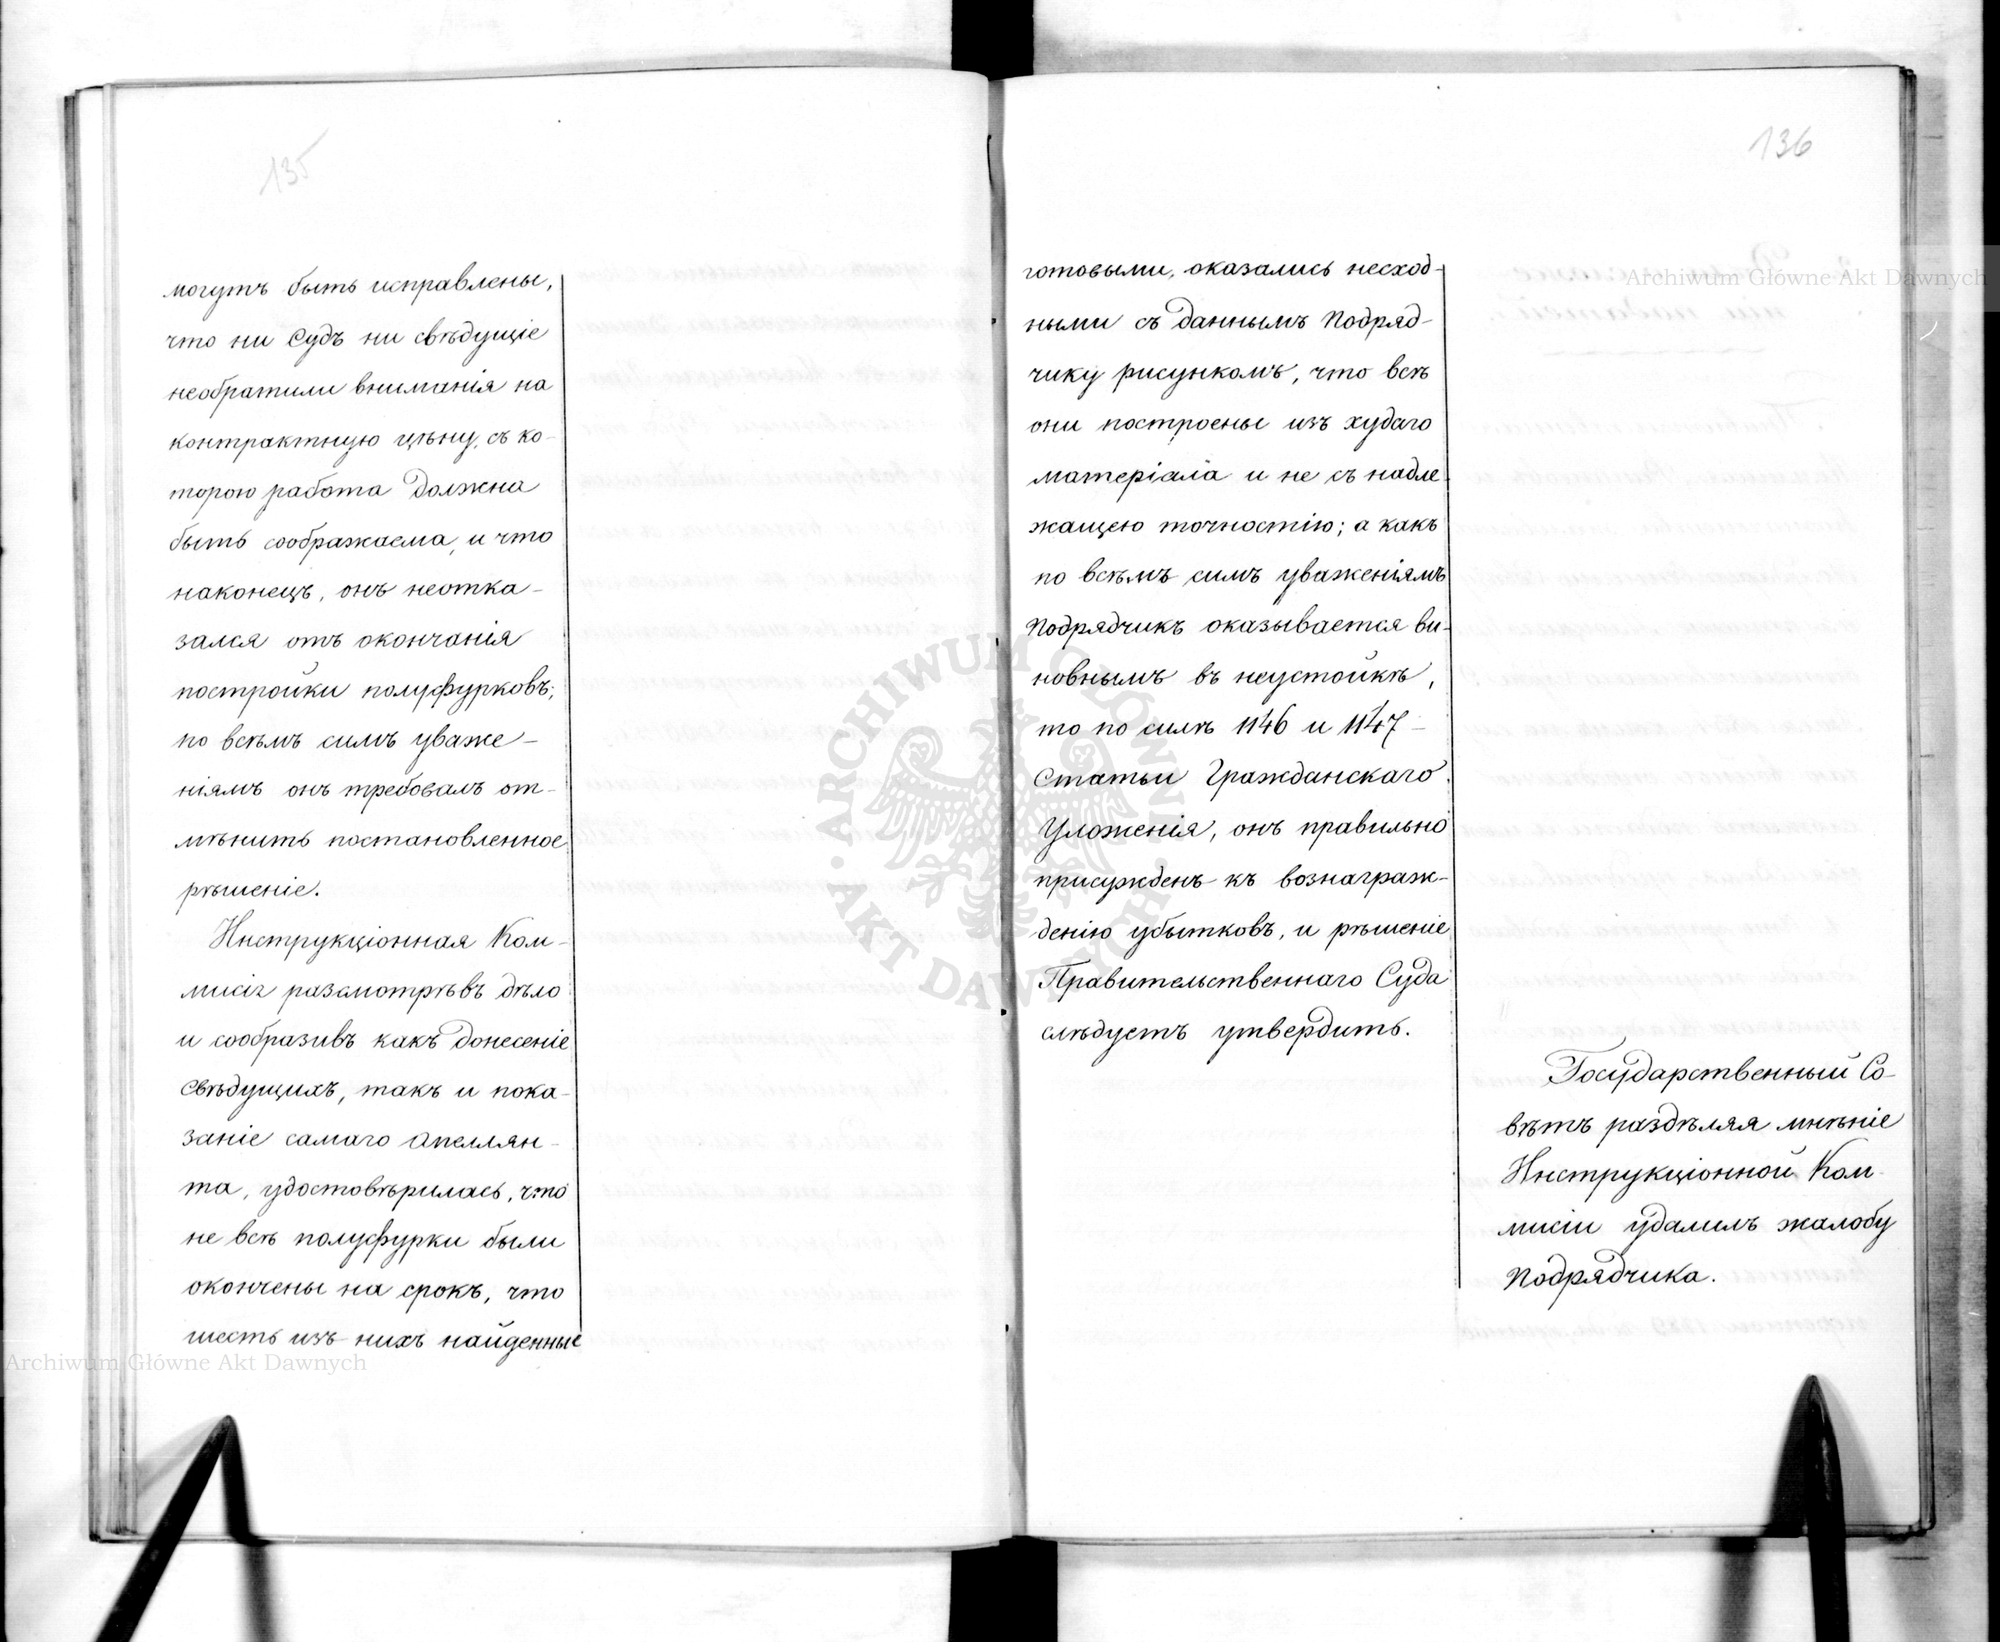 135
могутъ быть исправлены,
что ни Судъ ни свѣдущіе
необратили вниманія на
контрактную цѣну, съ ко-
торою работа должна
быть соображаема, и что
наконецъ, онъ неотка-
зался отъ окончанія
постройки полуфурковъ;
по всѣмъ симъ уваже-
ніямъ онъ требовалъ от-
мѣнить постановленное
рѣшеніе.
Инструкціонная Ком-
мисія разсмотрѣвъ дѣло
и сообразивъ какъ донесеніе
свѣдущихъ, такъ и пока-
заніе самаго Апеллян-
та, удостовѣрилась, что
не всѣ полуфурки были
окончены на срокъ, что
шесть изъ нихъ найденные
136
готовыми, оказались несход-
ными съ даннымъ Подряд-
чику рисункомъ, что всѣ
они построены изъ худаго
матеріала и не съ надле-
жащею точностію; а какъ
по всѣмъ симъ уваженіямъ
Подрядчикъ оказывается ви-
новнымъ въ неустойкѣ,
то по силѣ 1146 и 1147
Статьи Гражданскаго
Уложенія, онъ правильно
присужденъ къ вознаграж-
денію убытковъ, и рѣшеніе
Правительственнаго Суда
слѣдуетъ утвердить.
Государственный Со-
вѣтъ раздѣляя мнѣніе
Инструкціонной Ком-
мисіи удалилъ жалобу
Подрядчика.
Archiwum Główne Akt Dawnych
Archiwum Główne Akt Dawnych
ARCHIWUM GŁÓWNE · AKT DAWNYCH ·